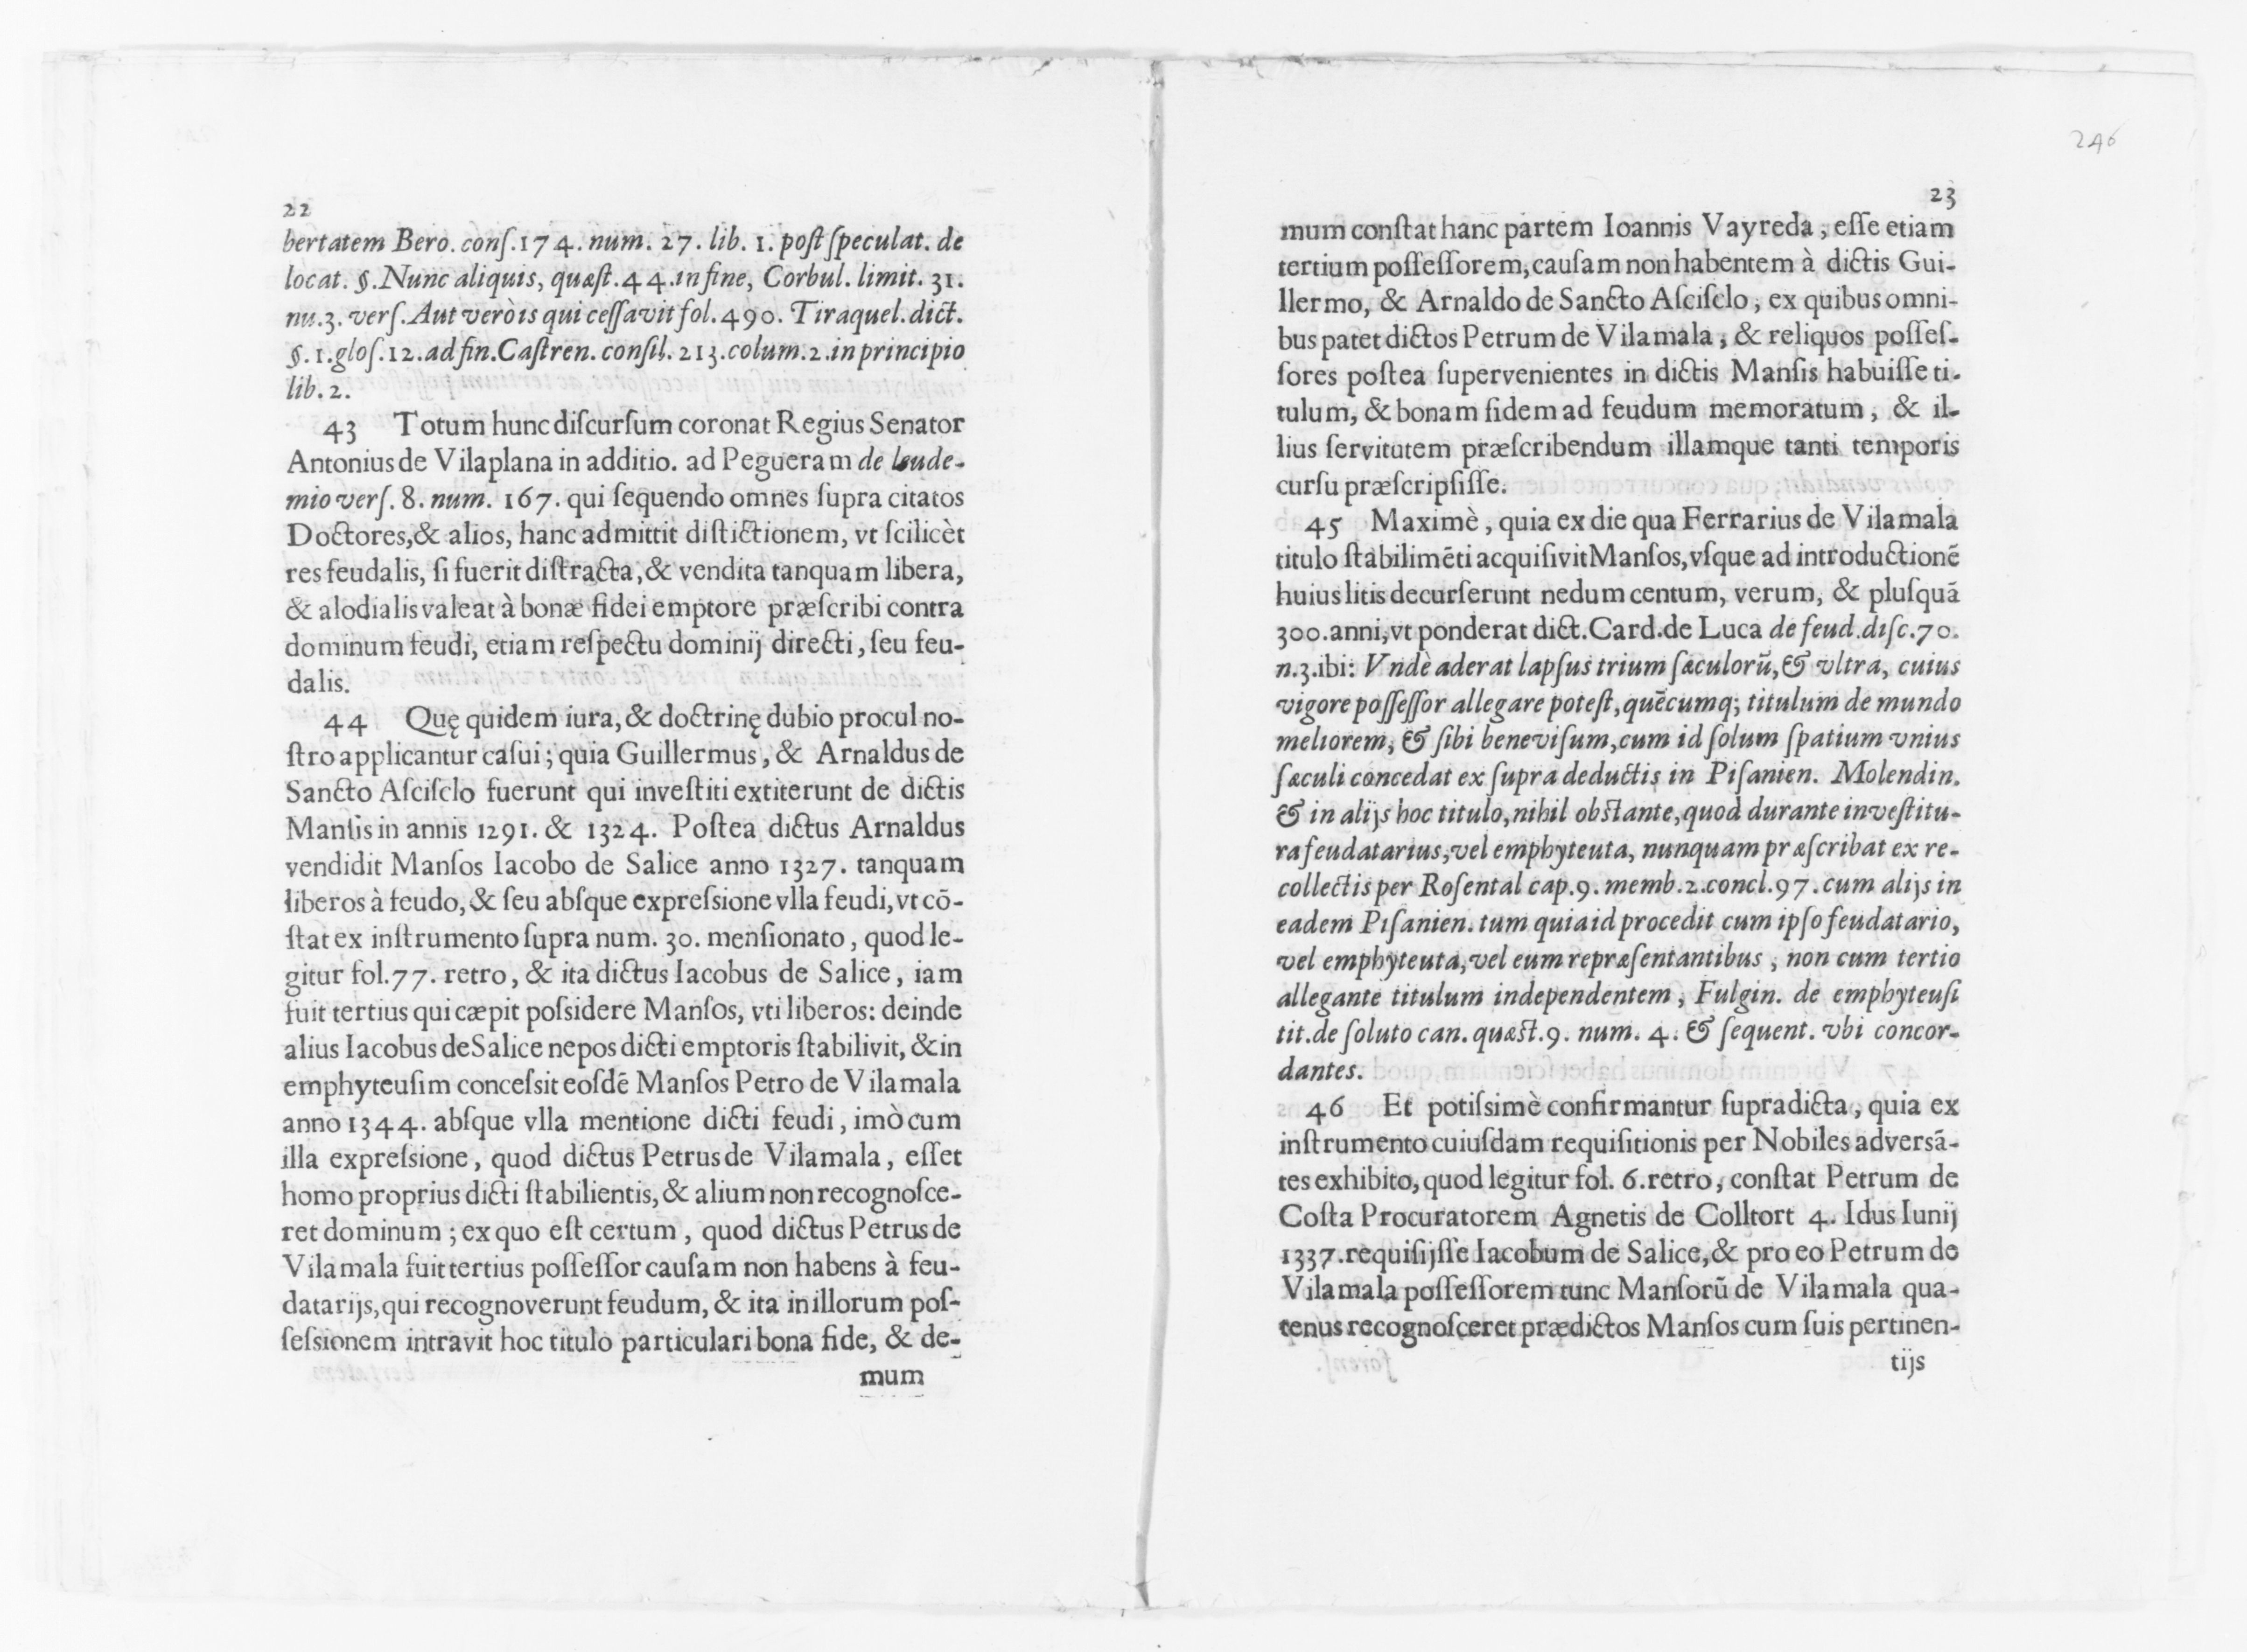 22
bertatem Bero. conſ. 174. num. 27. lib. 1. poſt ſpeculat. de
locat. §. Nunc aliquis, quæſt. 44. in fine, Corbul. limit. 31.
nu. 3. verſ. Aut verò is qui ceſſavit fol. 490. Tiraquel. dict.
§. 1. gloſ. 12. ad fin. Caſtren. conſil. 213. colum. 2. in principio
lib. 2.
43 Totum hunc diſcurſum coronat Regius Senator
Antonius de Vilaplana in additio. ad Pegueram de laude-
mio verſ. 8. num. 167. qui ſequendo omnes ſupra citatos
Doctores, & alios, hanc admittit diſtictionem, vt ſcilicèt
res feudalis, ſi fuerit diſtracta, & vendita tanquam libera,
& alodialis valeat à bonæ fidei emptore præſcribi contra
dominum feudi, etiam reſpectu dominij directi, ſeu feu-
dalis.
44 Quę quidem iura, & doctrinę dubio procul no-
ſtro applicantur caſui; quia Guillermus, & Arnaldus de
Sancto Aſciſclo fuerunt qui inveſtiti extiterunt de dictis
Manſis in annis 1291. & 1324. Poſtea dictus Arnaldus
vendidit Manſos Iacobo de Salice anno 1327. tanquam
liberos à feudo, & ſeu abſque expreſsione vlla feudi, vt cō-
ſtat ex inſtrumento ſupra num. 30. menſionato, quod le-
gitur fol. 77. retro, & ita dictus Iacobus de Salice, iam
fuit tertius qui cæpit poſsidere Manſos, vti liberos: deinde
alius Iacobus de Salice nepos dicti emptoris ſtabilivit, & in
emphyteuſim conceſsit eoſdē Manſos Petro de Vilamala
anno 1344. abſque vlla mentione dicti feudi, imò cum
illa expreſsione, quod dictus Petrus de Vilamala, eſſet
homo proprius dicti ſtabilientis, & alium non recognoſce-
ret dominum; ex quo eſt certum, quod dictus Petrus de
Vilamala fuit tertius poſſeſſor cauſam non habens à feu-
datarijs, qui recognoverunt feudum, & ita in illorum poſ-
ſeſsionem intravit hoc titulo particulari bona fide, & de-
mum
246
23
mum conſtat hanc partem Ioannis Vayreda, eſſe etiam
tertium poſſeſſorem, cauſam non habentem à dictis Gui-
llermo, & Arnaldo de Sancto Aſciſclo, ex quibus omni-
bus patet dictos Petrum de Vilamala, & reliquos poſſeſ-
ſores poſtea ſupervenientes in dictis Manſis habuiſſe ti-
tulum, & bonam fidem ad feudum memoratum, & il-
lius ſervitutem præſcribendum illamque tanti temporis
curſu præſcripſiſſe.
45 Maximè, quia ex die qua Ferrarius de Vilamala
titulo ſtabilimēti acquiſivit Manſos, vſque ad introductionē
huius litis decurſerunt nedum centum, verum, & pluſquā
300. anni, vt ponderat dict. Card. de Luca de feud. diſc. 70.
n. 3. ibi: Vndè aderat lapſus trium ſæculorū, & vltra, cuius
vigore poſſeſſor allegare poteſt, quēcumq; titulum de mundo
meliorem, & ſibi beneviſum, cum id ſolum ſpatium vnius
ſæculi concedat ex ſupra deductis in Piſanien. Molendin.
& in alijs hoc titulo, nihil obſtante, quod durante inveſtitu-
ra feudatarius, vel emphyteuta, nunquam præſcribat ex re-
collectis per Roſental cap. 9. memb. 2. concl. 97. cum alijs in
eadem Piſanien. tum quia id procedit cum ipſo feudatario,
vel emphyteuta, vel eum repræſentantibus, non cum tertio
allegante titulum independentem, Fulgin. de emphyteuſi
tit. de ſoluto can. quæſt. 9. num. 4. & ſequent. vbi concor-
dantes.
46 Et potiſsimè confirmantur ſupradicta, quia ex
inſtrumento cuiuſdam requiſitionis per Nobiles adversā-
tes exhibito, quod legitur fol. 6. retro, conſtat Petrum de
Coſta Procuratorem Agnetis de Colltort 4. Idus Iunij
1337. requiſijſſe Iacobum de Salice, & pro eo Petrum de
Vilamala poſſeſſorem tunc Manſorū de Vilamala qua-
tenus recognoſceret prædictos Manſos cum ſuis pertinen-
tijs